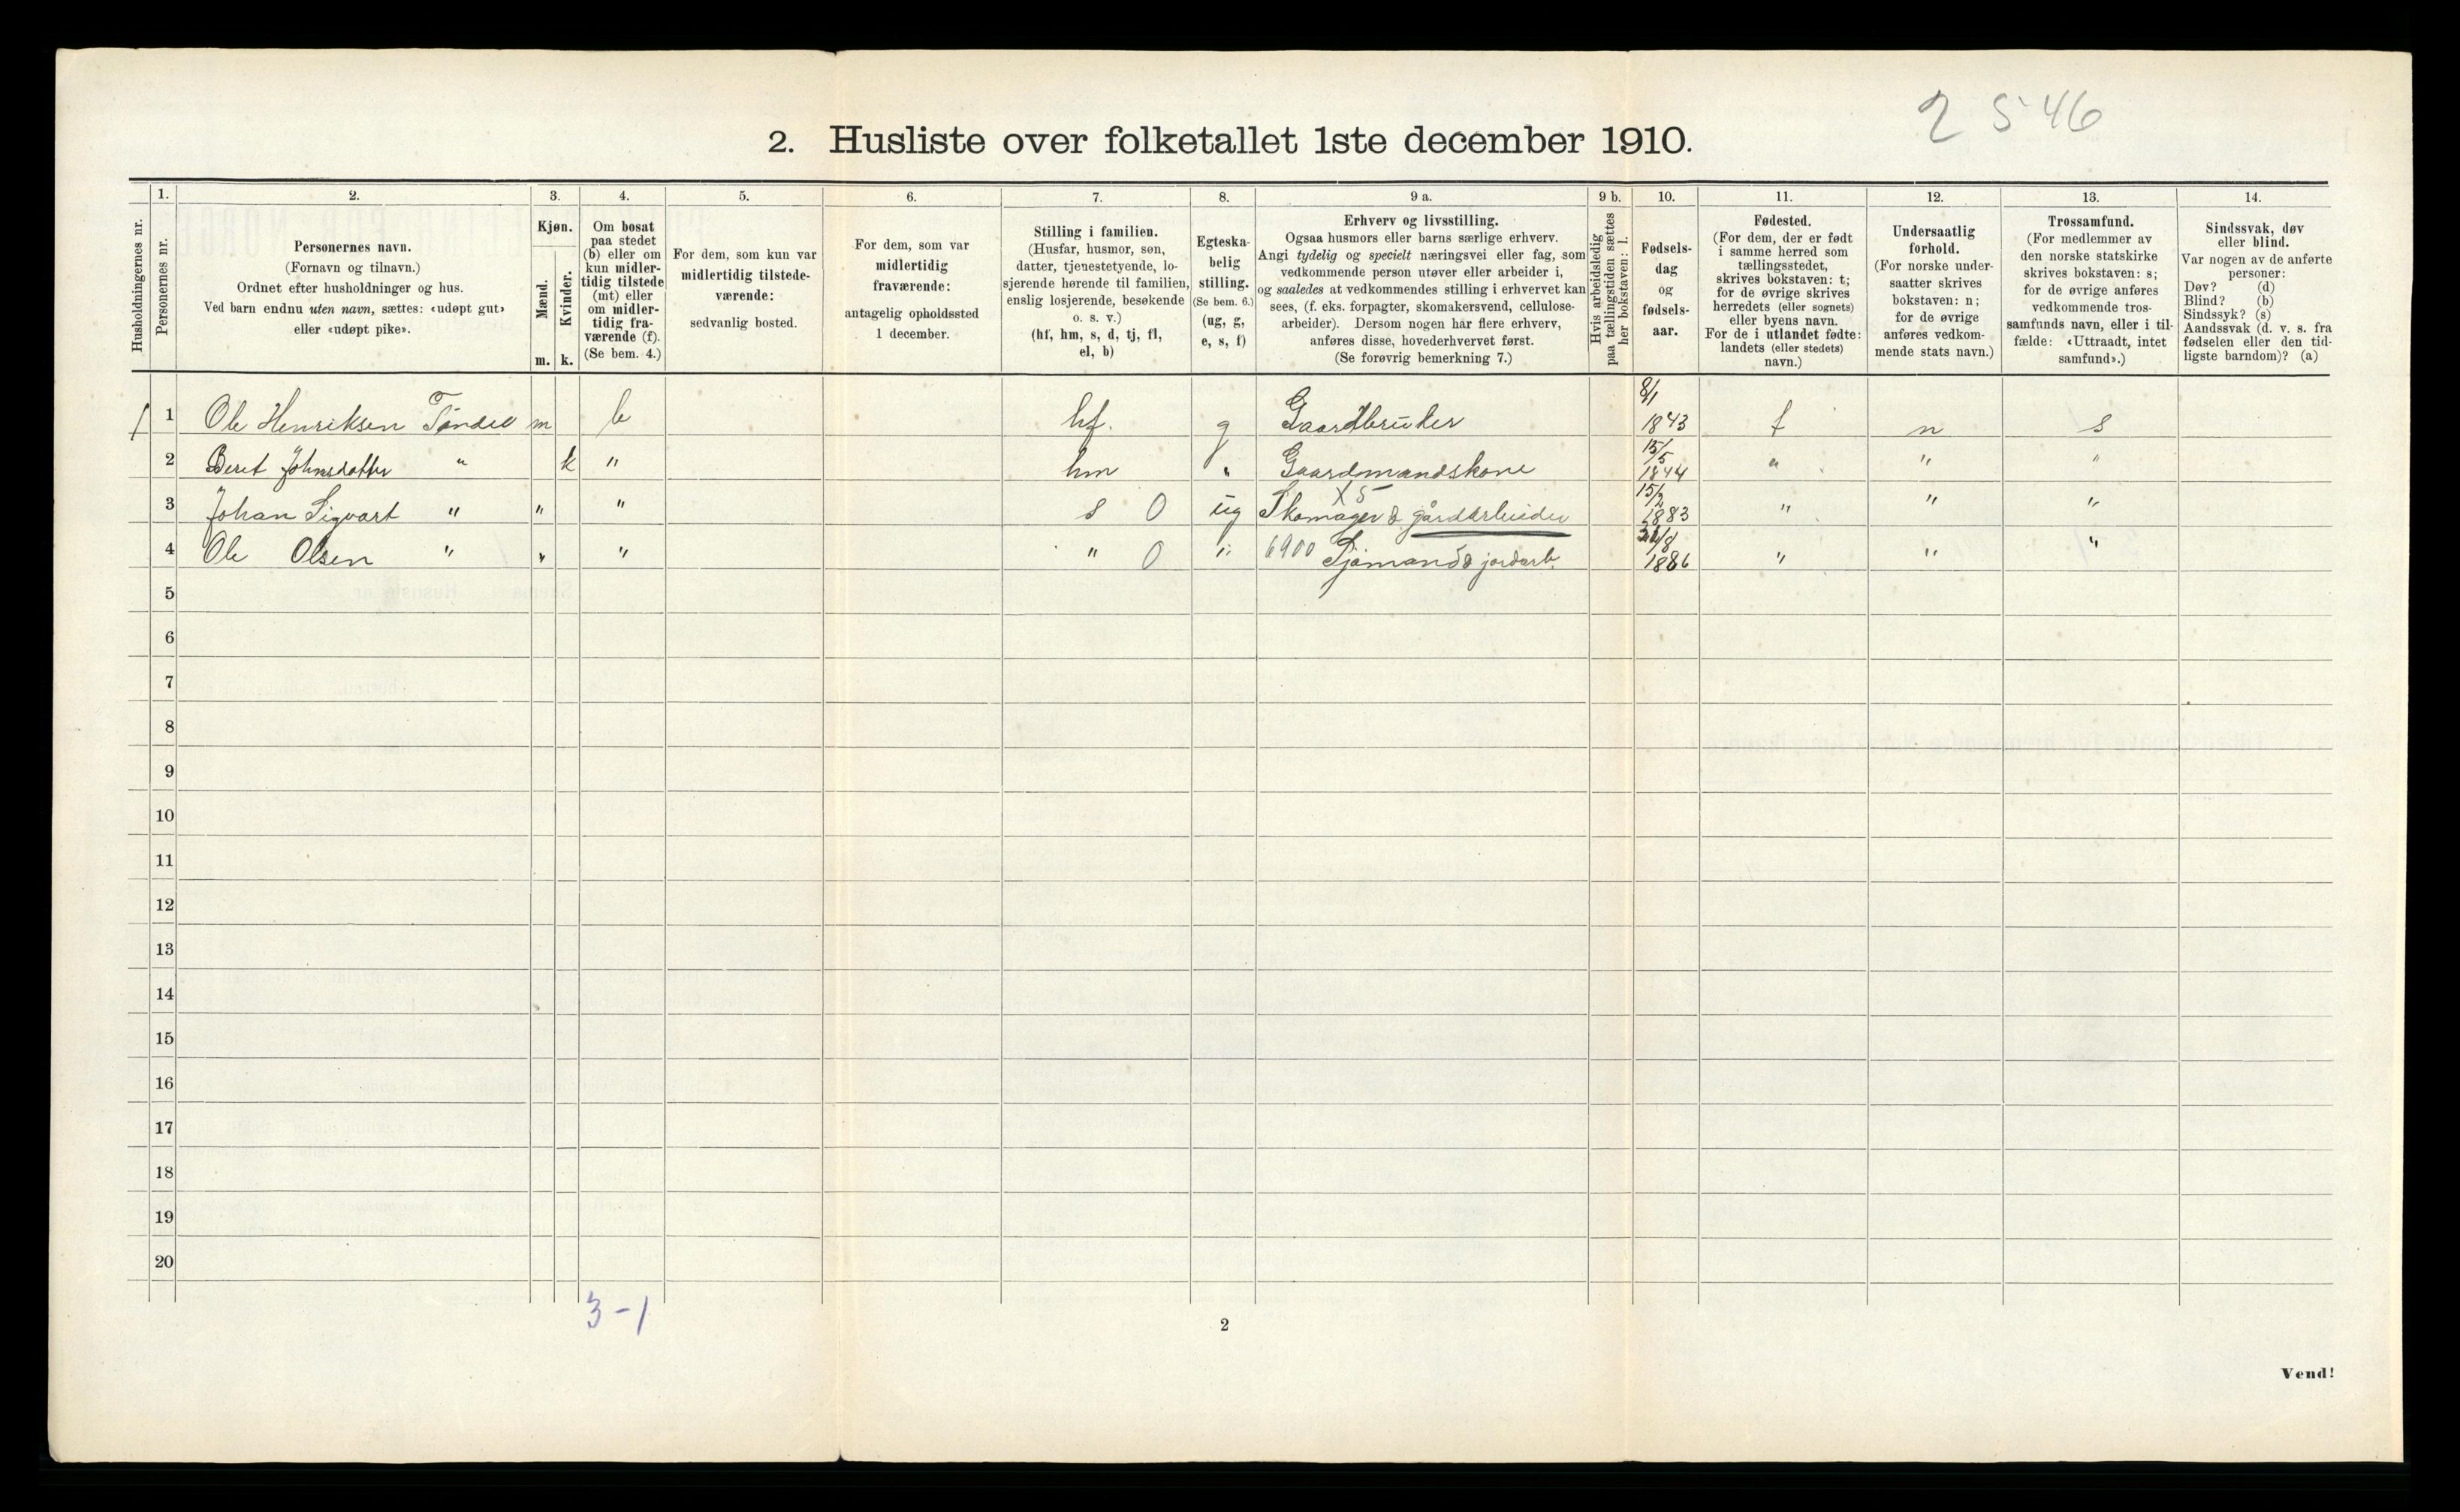 2 546
2. Husliste over folketallet 1ste december 1910.
Husholdningernes nr.
1.
Personernes nr.
2.
Personernes navn.
(Fornavn og tilnavn.)
Ordnet efter husholdninger og hus.
Ved barn endnu uten navn, sættes: «udøpt gut»
eller «udøpt pike».
3.
Kjøn.
Mænd.
Kvinder.
m. k.
4.
Om bosat
paa stedet
(b) eller om
kun midler-
tidig tilstede
(mt) eller
om midler-
tidig fra-
værende (f).
(Se bem. 4.)
5.
For dem, som kun var
midlertidig tilstede-
værende:
sedvanlig bosted.
6.
For dem, som var
midlertidig
fraværende:
antagelig opholdssted
1 december.
7.
Stilling i familien.
(Husfar, husmor, søn,
datter, tjenestetyende, lo-
sjerende hørende til familien,
enslig losjerende, besøkende
o. s. v.)
(hf, hm, s, d, tj, fl,
el, b)
8.
Egteska-
belig
stilling.
(Se bem. 6.)
(ug, g,
e, s, f)
9 a.
Erhverv og livsstilling.
Ogsaa husmors eller barns særlige erhverv.
Angi tydelig og specielt næringsvei eller fag, som
vedkommende person utøver eller arbeider i,
og saaledes at vedkommendes stilling i erhvervet kan
sees, (f. eks. forpagter, skomakersvend, cellulose-
arbeider). Dersom nogen har flere erhverv,
anføres disse, hovederhvervet først.
(Se forøvrig bemerkning 7.)
9 b.
Hvis arbeidsledig
paa tællingstiden sættes
her bokstaven: l.
10.
Fødsels-
dag
og
fødsels-
aar.
11.
Fødested.
(For dem, der er født
i samme herred som
tællingsstedet,
skrives bokstaven: t;
for de øvrige skrives
herredets (eller sognets)
eller byens navn.
For de i utlandet fødte:
landets (eller stedets)
navn.)
12.
Undersaatlig
forhold.
(For norske under-
saatter skrives
bokstaven: n;
for de øvrige
anføres vedkom-
mende stats navn.)
13.
Trossamfund.
(For medlemmer av
den norske statskirke
skrives bokstaven: s;
for de øvrige anføres
vedkommende tros-
samfunds navn, eller i til-
fælde: «Uttraadt, intet
samfund».)
14.
Sindssvak, døv
eller blind.
Var nogen av de anførte
personer:
Døv? (d)
Blind? (b)
Sindssyk? (s)
Aandssvak (d. v. s. fra
fødselen eller den tid-
ligste barndom)? (a)
1 1 Ole Henriksen Tøndel m b hf. g Gaardbruker 8/1 1843 t n s
2 Beret Johnsdatter " k " hm " Gaardmandskone 15/5 1844 " " "
3 Johan Sigvart " " " s O ug X5 Skomager & gårdarbeider 15/2 1883 " " "
4 Ole Olsen " " " " O " 6900 Sjømand & jordarb. /8 1886 " " "
5
6
7
8
9
10
11
12
13
14
15
16
17
18
19
20
3 - 1
2
Vend!